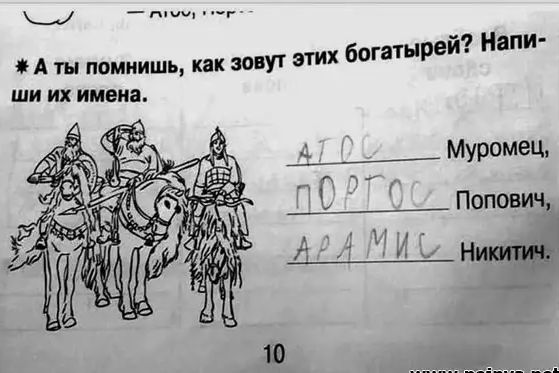 — Атос, Порт
* А ты помнишь, как зовут этих богатырей? Напи-
ши их имена.
АТОС Муромец,
ПОРГОС Попович,
АРАМИС Никитич.
10